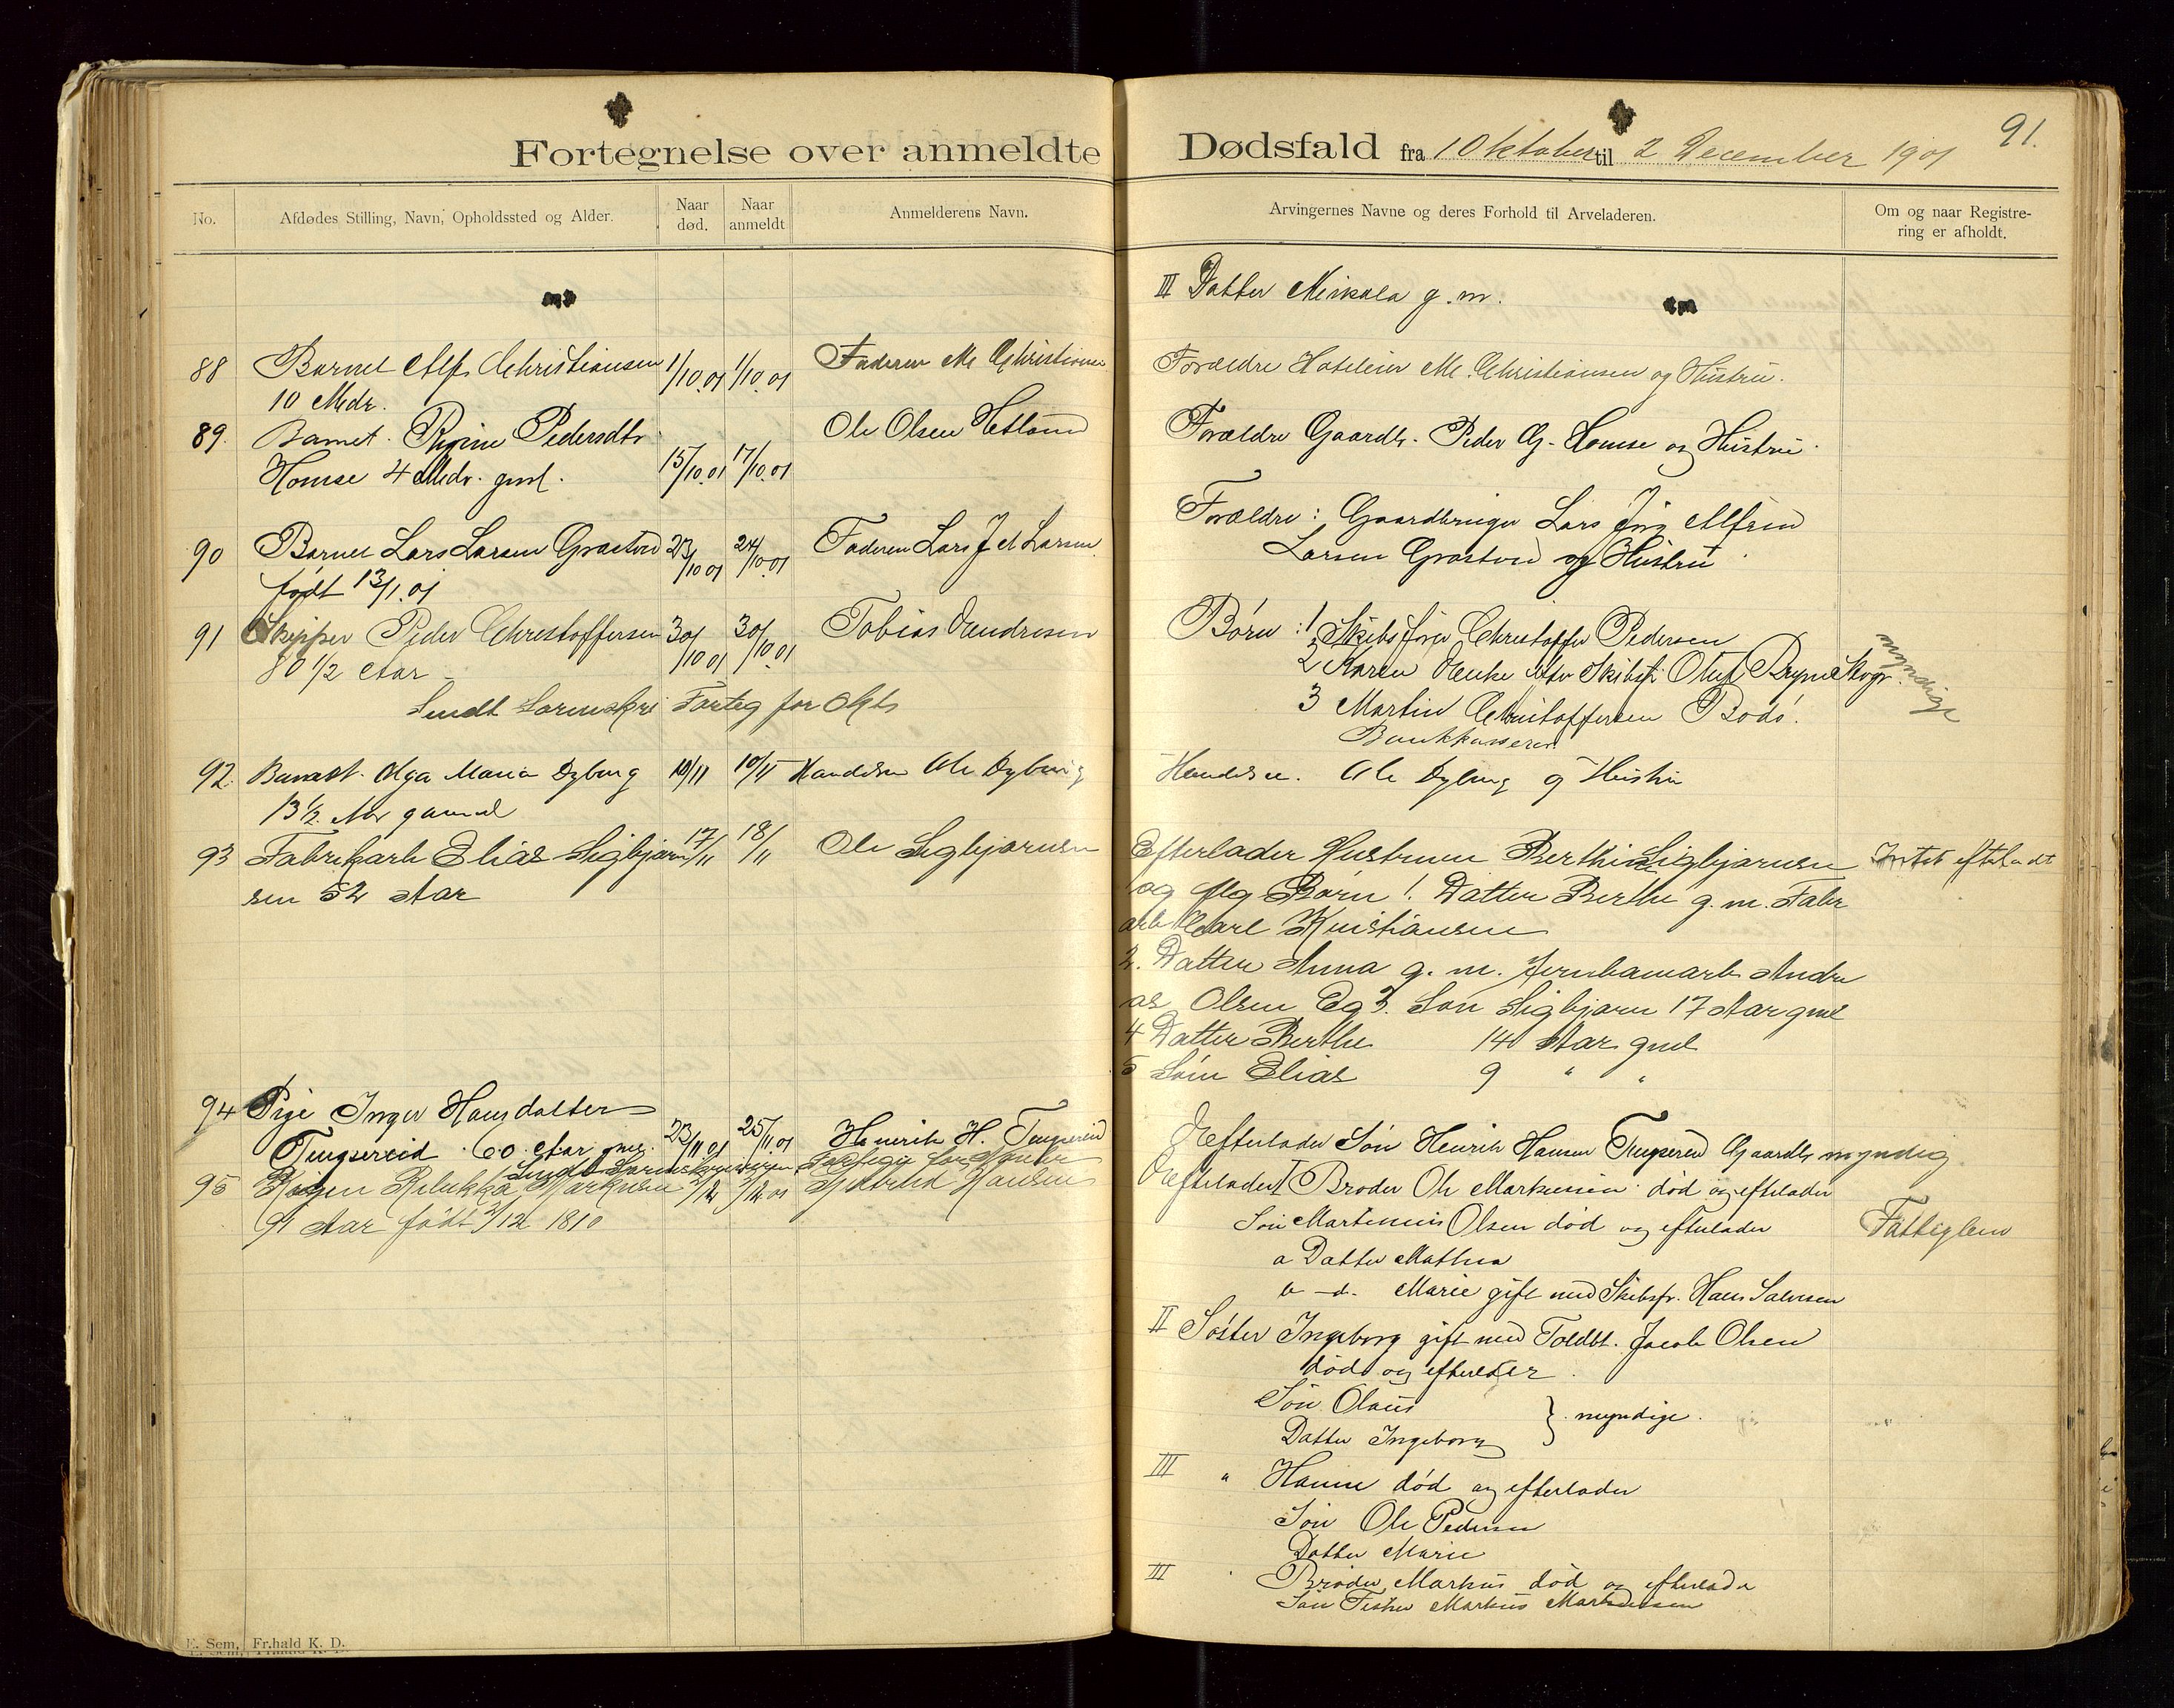 Fortegnelse over anmeldte
No.
Afdødes Stilling, Navn, Opholdssted og Alder.
Naar død.
Naar anmeldt
Anmelderens Navn.
88 Barnet Alf Christiansen 1/10.01 1/10.01 Faderen M. Christiansen
10 Mdr.
89. Barnet Regine Pedersdtr Ole Olsen Hetland
Homse 4 Mdr. gml. 15/10.01 17/10.01
90 Barnet Lars Larsen 23/10 01 24/10.01 Faderen Lars J A Larsen
født 13/1.01
91 Skipper Peder Christoffersen 30/10 01 30/10.01 Tobias Endresen
80 1/2 Aar
Sendt Sorenskr Forteg for Afts
92. Olga Maria Dyburg 10/11 10/11 Ole Dyburg
13 1/2 Aar gammel
93 Fabrikarb Elias Sigbjørn 17/11 18/11 Ole Sigbjørnsen
sen 52 Aar
94 Pige Inger Hansdatter
Tengsereid 60 Aar gml. 23/11 01 25/11.01 Henrik H. Tengsereid
95 Markusen 2/12 2/12 01 Hansen
91 Aar født 2/12 1810
E. Sem, Fr.hald K. D.
Dødsfald fra 1 Oktober til 2 December 1901
91.
Arvingernes Navne og deres Forhold til Arveladeren.
Om og naar Registrering er afholdt.
III Datter Mikala g.m.
Forældre Hoteleier M. Christiansen og Hustru.
Forældre Gaardb. Peder G. Homse og Hustru.
Forældre: Gaardbruger Lars Jørg Alfred
Larsen og Hustru
Børn: 1 Skibsfører Christoffer Pedersen
2 Karen Enke efter Skibsf. Oluf Bryne Skogr. myndige
3 Martin Christoffersen Bodø.
Bankkasserer
Ole Dyburg og Hustru
Efterlader Hustruen Berthe Sigbjørnsen Intet efterladt
og flg Børn 1. Datter Berthe g. m. Fabr
arb Carl Kristiansen
2. Datter Anna g. m. Jernbanearb Andre
as Olsen Eg 3. Søn Sigbjørn 17 Aar gml
4 Datter Berthe 14 Aar gml
5 Søn Elias 9 " "
Efterlader Søn Henrik Hansen Tengsereid Gaardb myndig
Efterlader I Broder Ole Markussen død og efterlader
Søn Martinius Olsen død og efterlader Fattiglem
a Datter Mathea
b -d- Marie gift med Skibsfr. Hans Salvesen
II Søster Ingeborg gift med Toldbt. Jacob Olsen
død og efterlader
Søn Olaus
Datter Ingeborg } myndige.
III " Hanne død og efterlader
Søn Ole Pedersen
Datter Marie
III Broder Markus død og efterlader
Søn Fisker Markus Markussen